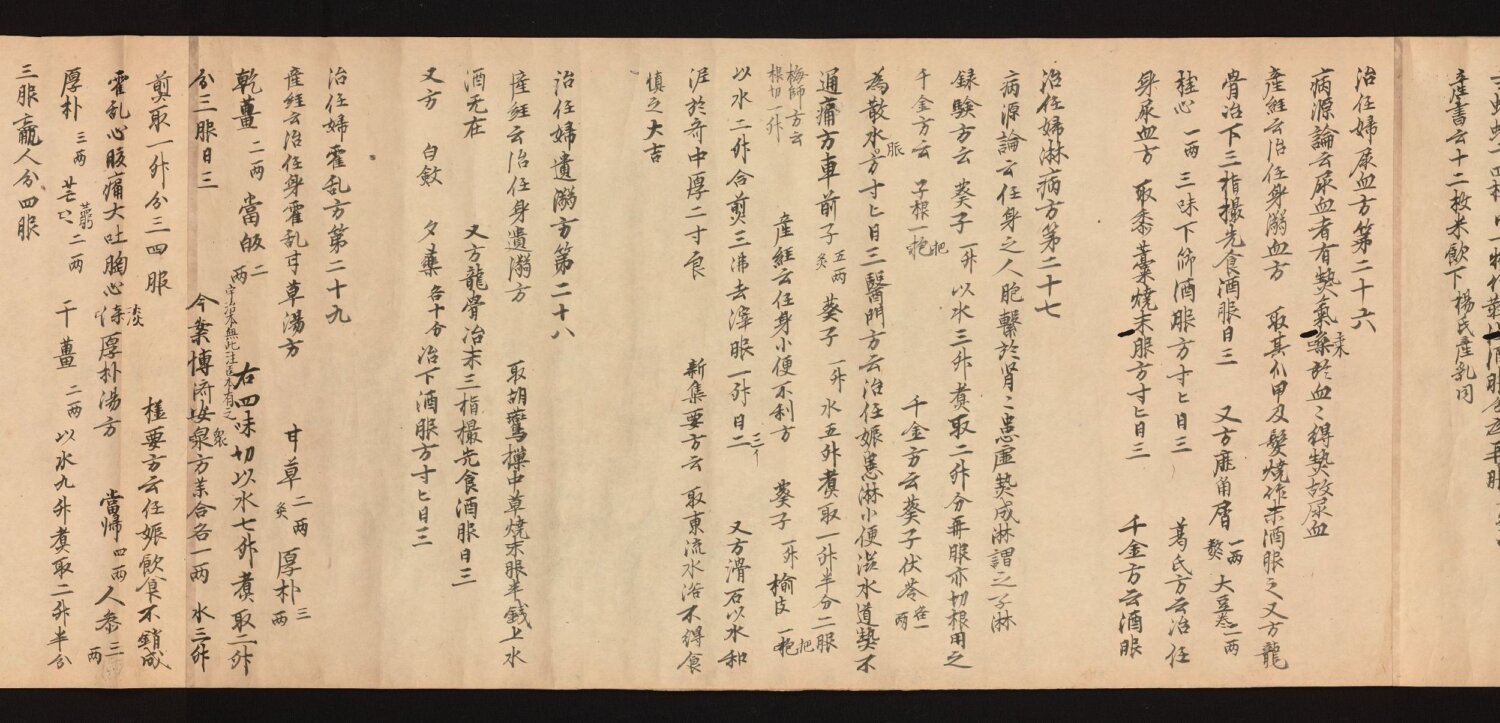 産書云十二枚米飲下楊氏産乳同
治任婦尿血方第二十六
病源論云尿血者有熱氣乗於血〻得熱故尿血
産經云治任身溺血方 取其爪甲及髮燒作末酒服之又方龍
骨冶下三指撮先食酒服日三 又方鹿角屑一兩熬 大豆卷二兩
桂心一兩 三味下篩酒服方寸匕日三 葛氏方云治任
身尿血方 取黍藁燒末服方寸匕日三 千金方云酒服
治任婦淋病方第二十七
病源論云任身之人胞繋於腎〻患虛熱成淋謂之子淋
録驗方云 葵子一升以水三升煮取二升分再服亦切根用之
千金方云 子根一把 千金方云葵子伏苓各一兩
為散水服方寸匕日三醫門方云治任娠患淋小便澁水道熱不
通痛方車前子五兩炙 葵子一升 水五升煮取一升半分二服
梅師方云根切一升 産經云任身小便不利方 葵子一升 榆皮一把
以水二升合煎三沸去滓服一升日二 又方滑石以水和
渥於齊中厚二寸良 新集要方云 取東流水浴不得食
慎之大吉
治任婦遺溺方第二十八
産經云治任身遺溺方 取胡鷰樔中草燒末服半錢上水
酒无在 又方龍骨冶末三指撮先食酒服日三
又方 白斂 夕藥各十分冶下酒服方寸匕日三
治任婦霍乱方第二十九
産經云治任身霍乱甘草湯方 甘草二兩炙 厚朴三兩
乾薑二兩 當皈二兩 宇治本無此注医本有之 右四味切以水七升煮取二升
分三服日三 今案博済安衆方 各一兩 水三升
煎取一升分三四服 極要方云任娠飲食不銷成
霍乱心腹痛大吐胸心淡 厚朴湯方 當帰四兩 人參三兩
厚朴三兩 芎二兩 干薑二兩 以水九升煮取二升半分
三服羸人分四服